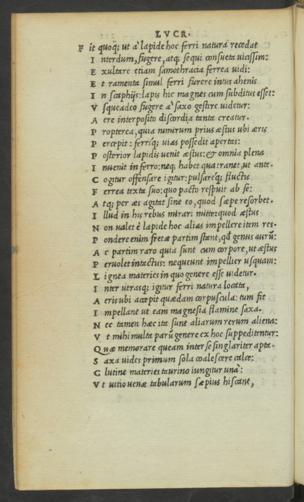 LVCR.
F it quoq; ut a' lapide hoc ferri natura recedat
I nterdum, fugere, atq; sequi consueta uicissim:
E xultare etiam samothracia ferrea uidi:
E t ramenta simul ferri furere intus ahenis
I n scaphijs: lapis hic magnes cum subditus esset:
V squeadeo fugere a' saxo gestire uidetur.
A ere interposito discordia tanta creatur.
P ropterea, quia nimirum prius æstus ubi æris
P ercepit: ferriq; uias possedit apertas:
P osterior lapidis uenit æstus: & omnia plena
I nuenit in ferro: neq; habet qua tranet, ut ante.
C ogitur offensare igitur: pulsareq; fluctu
F errea texta suo: quo pacto respuit ab se:
A tq; per æs agitat sine eo, quod sæpe resorbet.
I llud in his rebus mirari mitte: quod æstus
N on ualet e' lapide hoc alias impellere item res.
P ondere enim fretæ partim stant, ql genus aurū:
A c partim raro quia sunt cum corpore, ut æstus
P eruolet intactus: nequeunt impellier usquam:
L ignea materies in quo genere esse uidetur.
I nter utrasq; igitur ferri natura locata,
A eris ubi accepit quædam corpuscula: tum fit
I mpellant ut eam magnesia flamine saxa.
N ec tamen hæc ita sunt aliarum rerum aliena:
V t mihi multa parū genere ex hoc suppeditentur:
Q uæ memorare queam inter se singlariter apta.
S axa uides primum sola coalescere calce:
G lutine materies taurino iungitur una:
V t uitio uenæ tabularum sæpius hiscant,